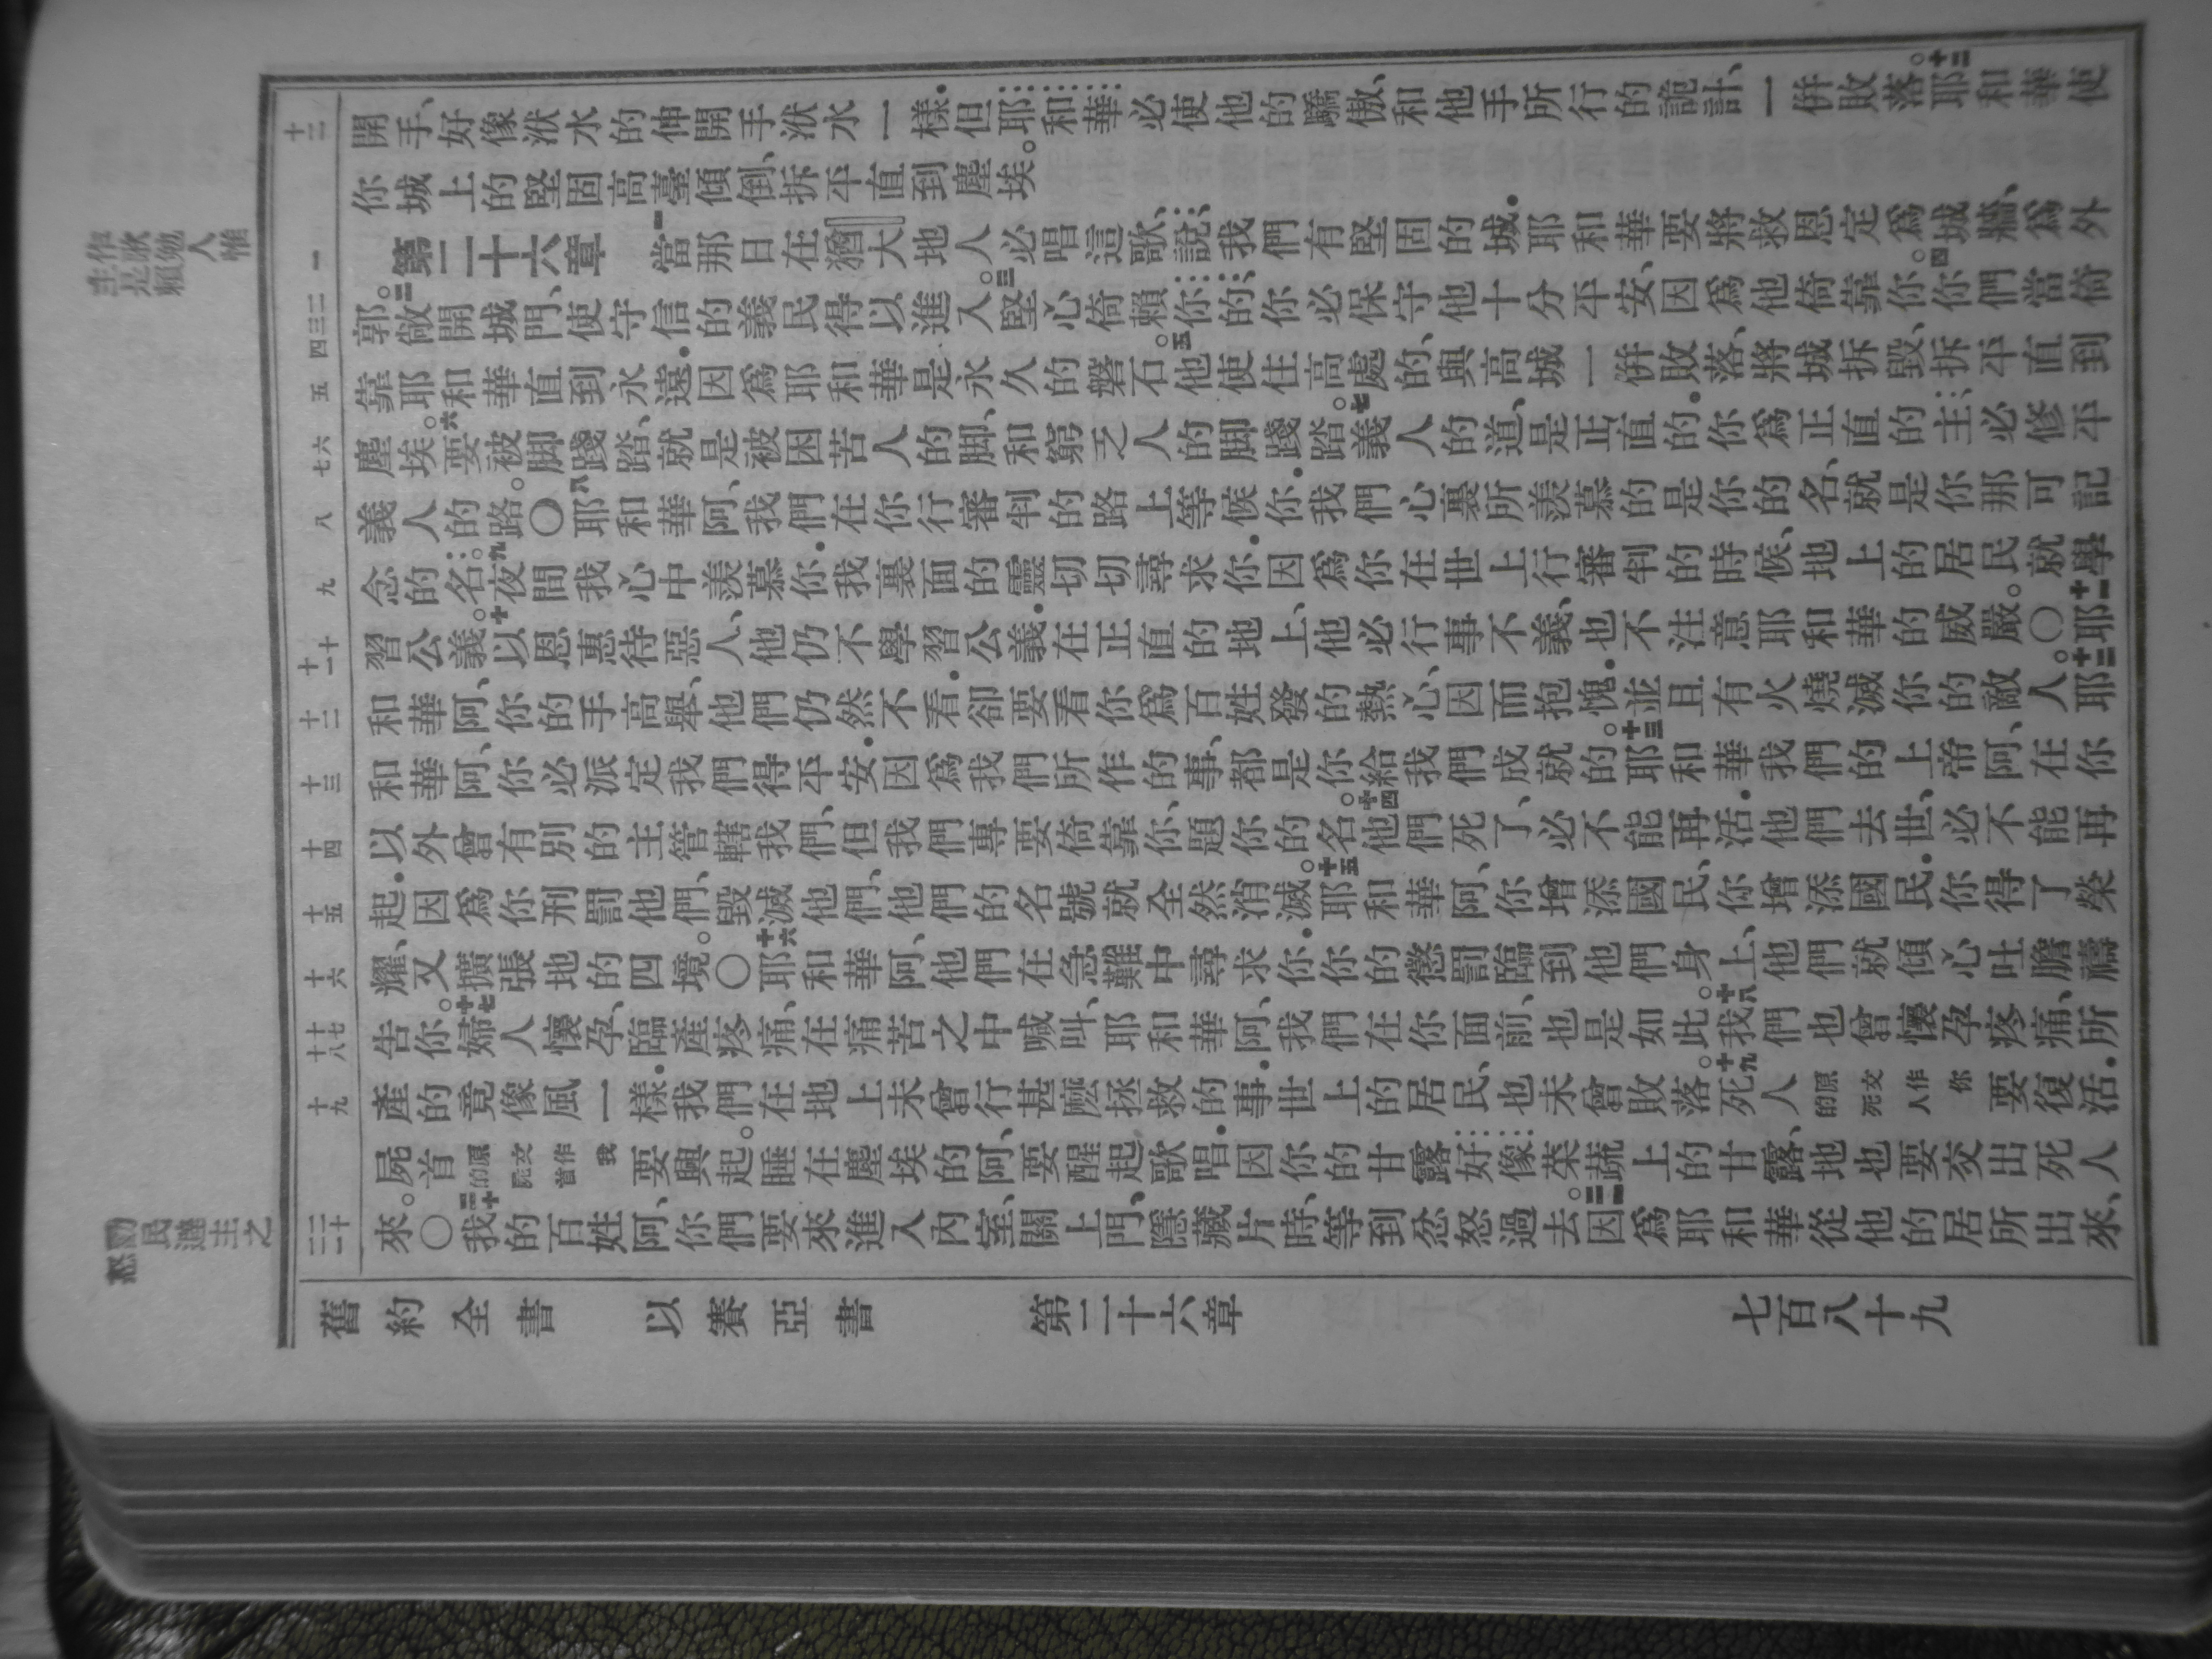 開手、好像洑水的伸開手洑水一樣．但耶和華必使他的驕傲、和他手所行的詭計、一併敗落。十二耶和華使
你城上的堅固高臺傾倒、拆平直到塵埃。
第二十六章 一當那日在猶大地人必唱這歌、說、我們有堅固的城．耶和華要將救恩定爲城牆、爲外
郭。二敞開城門、使守信的義民得以進入。三堅心倚賴你的、你必保守他十分平安、因爲他倚靠你。四你們當倚
靠耶和華直到永遠．因爲耶和華是永久的磐石。五他使住高處的、與高城一併敗落、將城拆毀、拆平直到
塵埃。六要被脚踐踏、就是被困苦人的脚、和窮乏人的脚踐踏。七義人的道、是正直的．你爲正直的主、必修平
義人的路。〇八耶和華阿、我們在你行審判的路上等候你．我們心裏所羨慕的是你的名、就是你那可記
念的名。九夜間我心中羨慕你．我裏面的靈切切尋求你．因爲你在世上行審判的時候、地上的居民就學
習公義。十以恩惠待惡人、他仍不學習公義．在正直的地上、他必行事不義、也不注意耶和華的威嚴。〇十一耶
和華阿、你的手高舉、他們仍然不看．卻要看你爲百姓發的熱心、因而抱愧．並且有火燒滅你的敵人。十二耶
和華阿、你必派定我們得平安．因爲我們所作的事、都是你給我們成就的。十三耶和華我們的上帝阿、在你
以外曾有別的主管轄我們、但我們專要倚靠你、題你的名。十四他們死了、必不能再活．他們去世、必不能再
起．因爲你刑罰他們、毀滅他們、他們的名號就全然消滅。十五耶和華阿、你增添國民、你增添國民．你得了榮
耀、又擴張地的四境。〇十六耶和華阿、他們在急難中尋求你．你的懲罰臨到他們身上、他們就傾心吐膽禱
告你。十七婦人懷孕、臨產疼痛、在痛苦之中喊叫、耶和華阿、我們在你面前、也是如此。十八我們也曾懷孕疼痛、所
產的竟像風一樣．我們在地上未曾行甚麽拯救的事．世上的居民、也未曾敗落。十九死人 原文作你的死人 要復活．
屍首 原文作我的屍首 要興起。睡在塵埃的阿、要醒起歌唱．因你的甘露好像菜蔬上的甘露、地也要交出死人
來。〇二十我的百姓阿、你們要來進入內室、關上門、隱藏片時、等到忿怒過去。二一因爲耶和華從他的居所出來、
舊約全書 以賽亞書 第二十六章 七百八十九
十二
一
二
三
四
五
六
七
八
九
十
十一
十二
十三
十四
十五
十六
十七
十八
十九
二十
二一